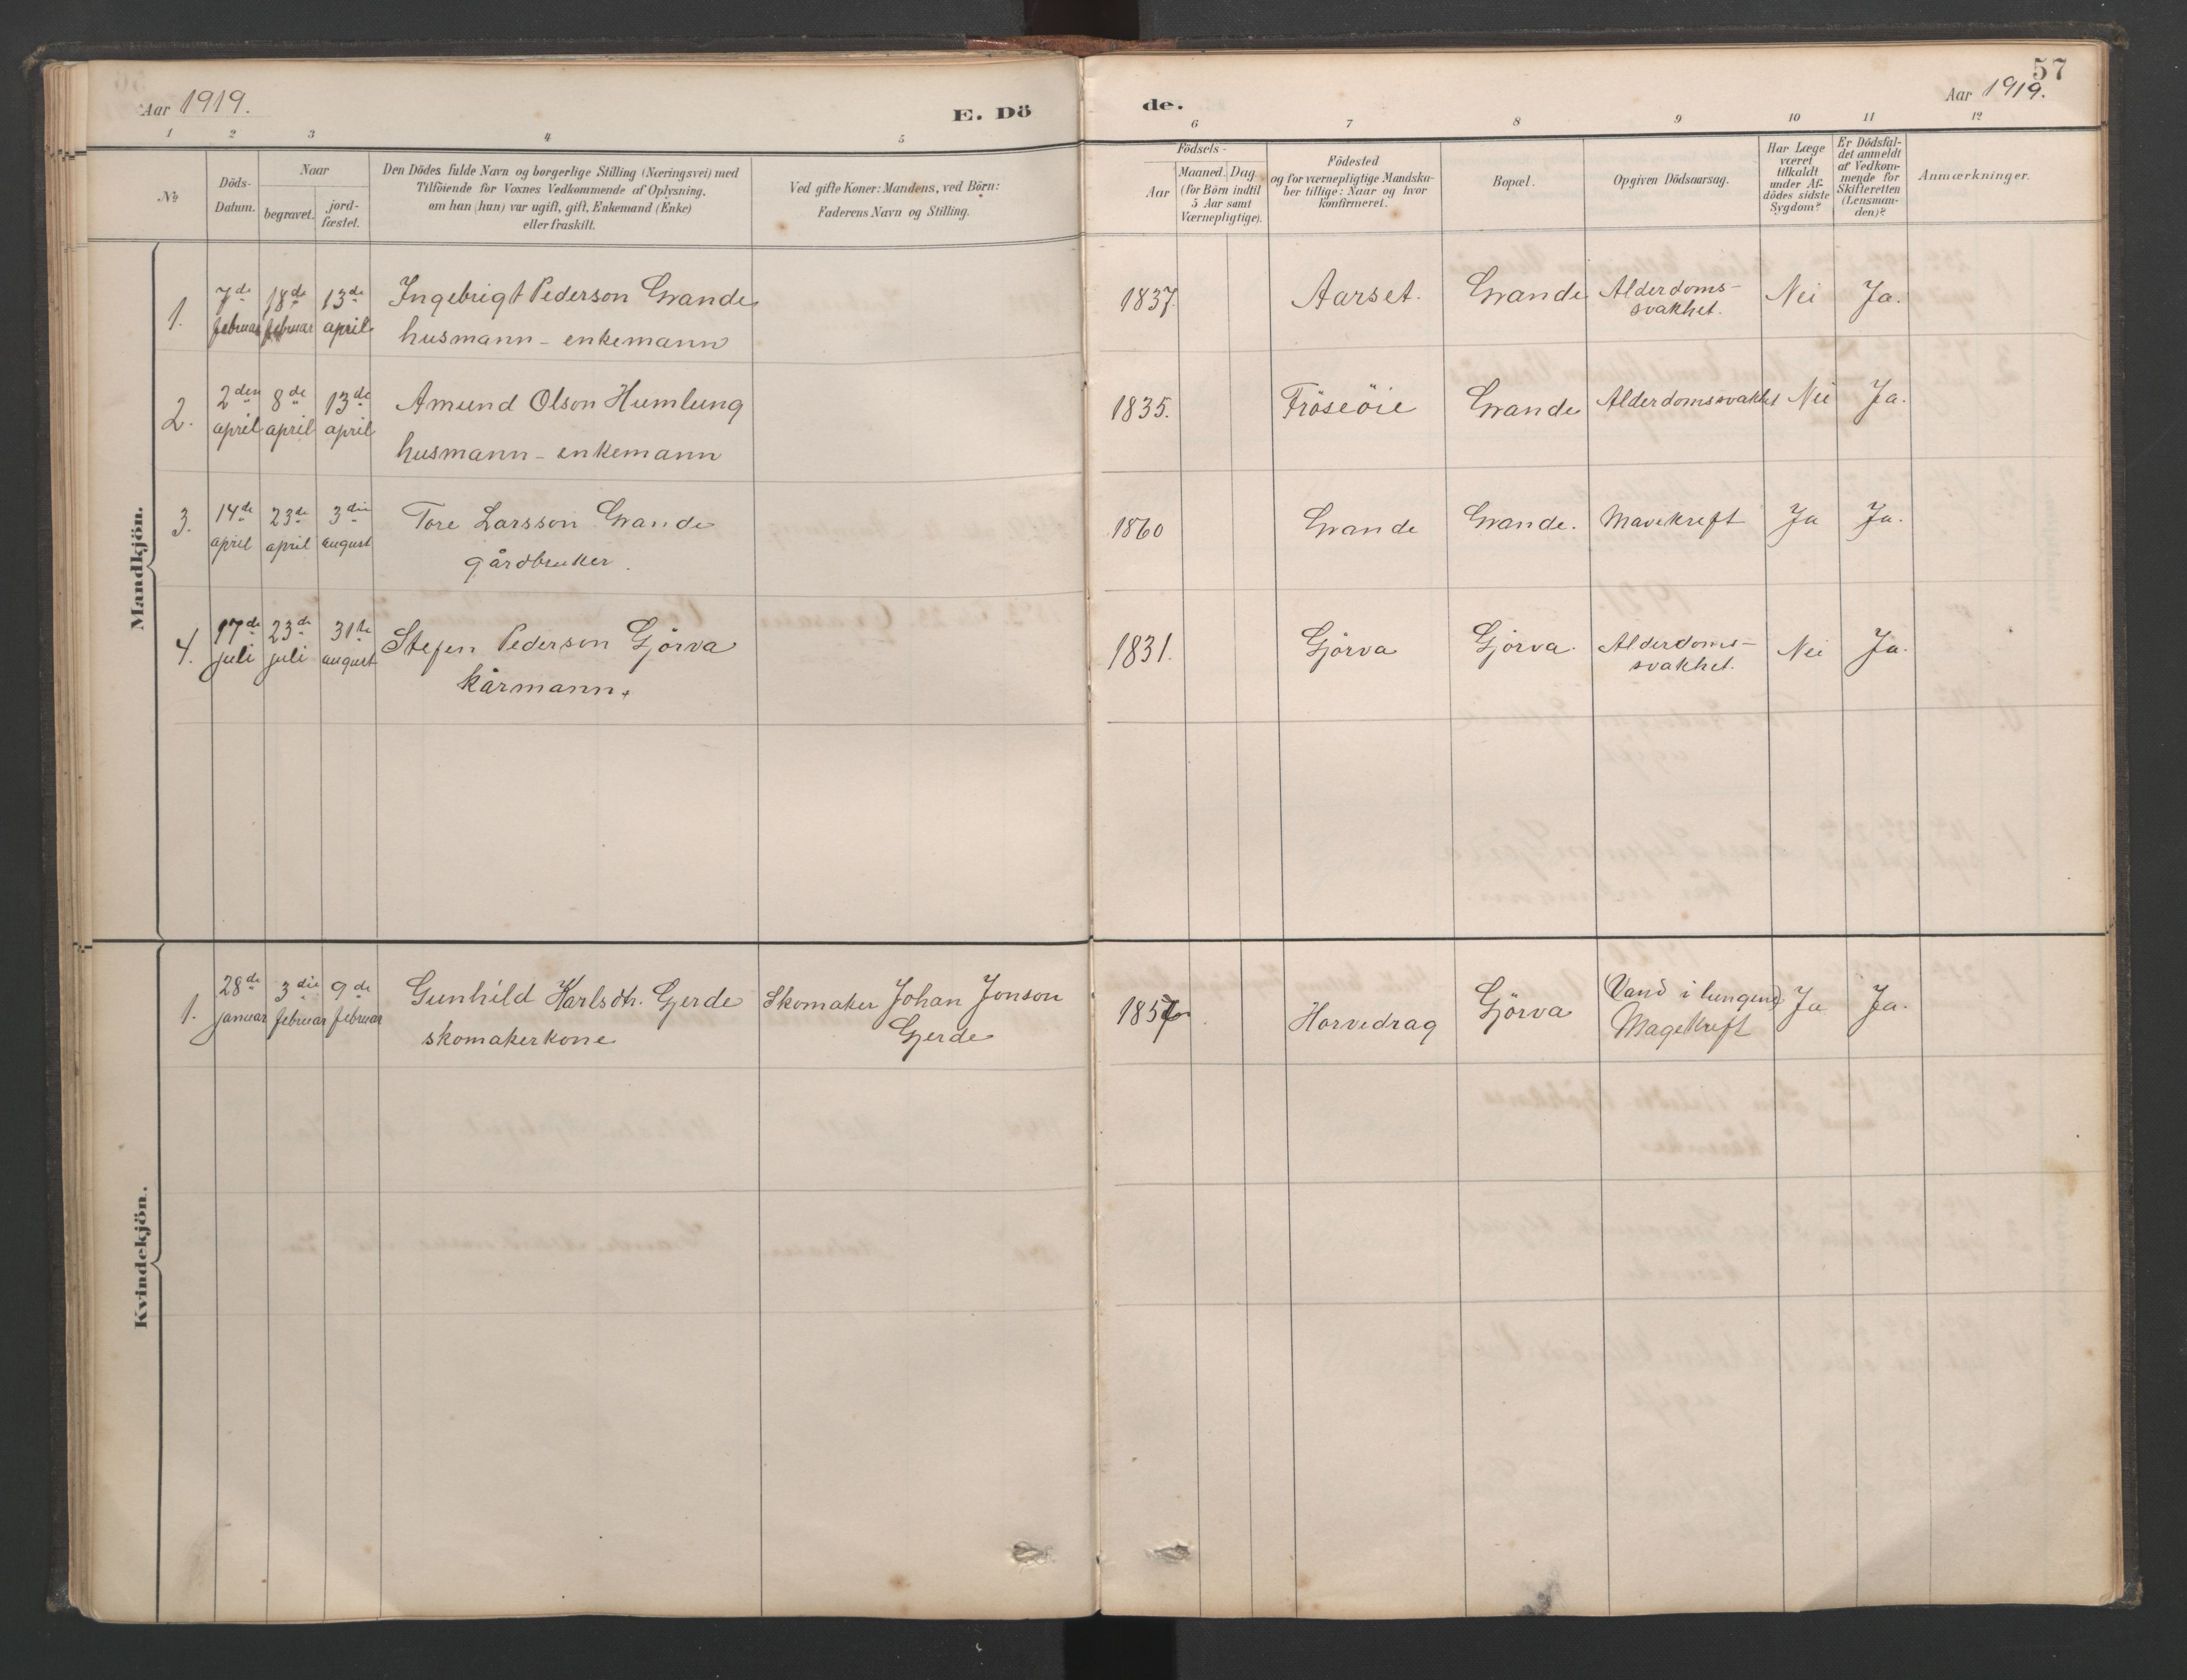 57
Aar 1919.
E. Dö
de.
Aar 1919.
1 2 3 4 5 6 7 8 9 10 11 12
№
Döds-
Datum.
Naar
begravet.
jord-
fæstet.
Den Dödes fulde Navn og borgerlige Stilling (Næringsvei) med
Tilföiende for Voxnes Vedkommende af Oplysning,
om han (hun) var ugift, gift, Enkemand (Enke)
eller fraskilt.
Ved gifte Koner: Mandens, ved Börn:
Faderens Navn og Stilling.
Födsels-
Aar
Maaned. Dag.
(for Börn indtil
5 Aar samt
Værnepligtige).
Födested
og for værnepligtige Mandska-
ber tillige: Naar og hvor
konfirmeret.
Bopæl.
Opgiven Dödsaarsag.
Har Læge
været
tilkaldt
under Af-
dödes sidste
Sygdom?
Er Dödsfal-
det anmeldt
af Vedkom-
mende for
Skifteretten
(Lensman-
den)?
Anmærkninger.
Mandkjön.
1. 7de februar 18de februar 13de april Ingebrigt Pederson Grande 1837. Aarset. Grande Alderdoms- Nei Ja.
husmann - enkemann svakhet.
2. 2den april 8de april 13de april Amund Olson Humlung 1835. Fröseöie Grande Alderdomssvakhet Nei Ja.
husmann - enkemann
3. 14de april 23de april 3die august Tore Larsson Grande 1860 Grande Grande. Mavekreft Ja Ja.
gårdbruker.
4. 17de juli 23de juli 31te august Stefen Pederson Gjörva 1831. Gjörva Gjörva. Alderdoms- Nei Ja.
kårmann. svakhet.
Kvindekjön.
1. 28de januar 3die februar 9de februar Gunhild Karlsdtr. Gjerde Skomaker Johan Jonson Horvedrag Gjörva Vand i lungene Ja Ja.
skomakerkone Gjerde Magekreft